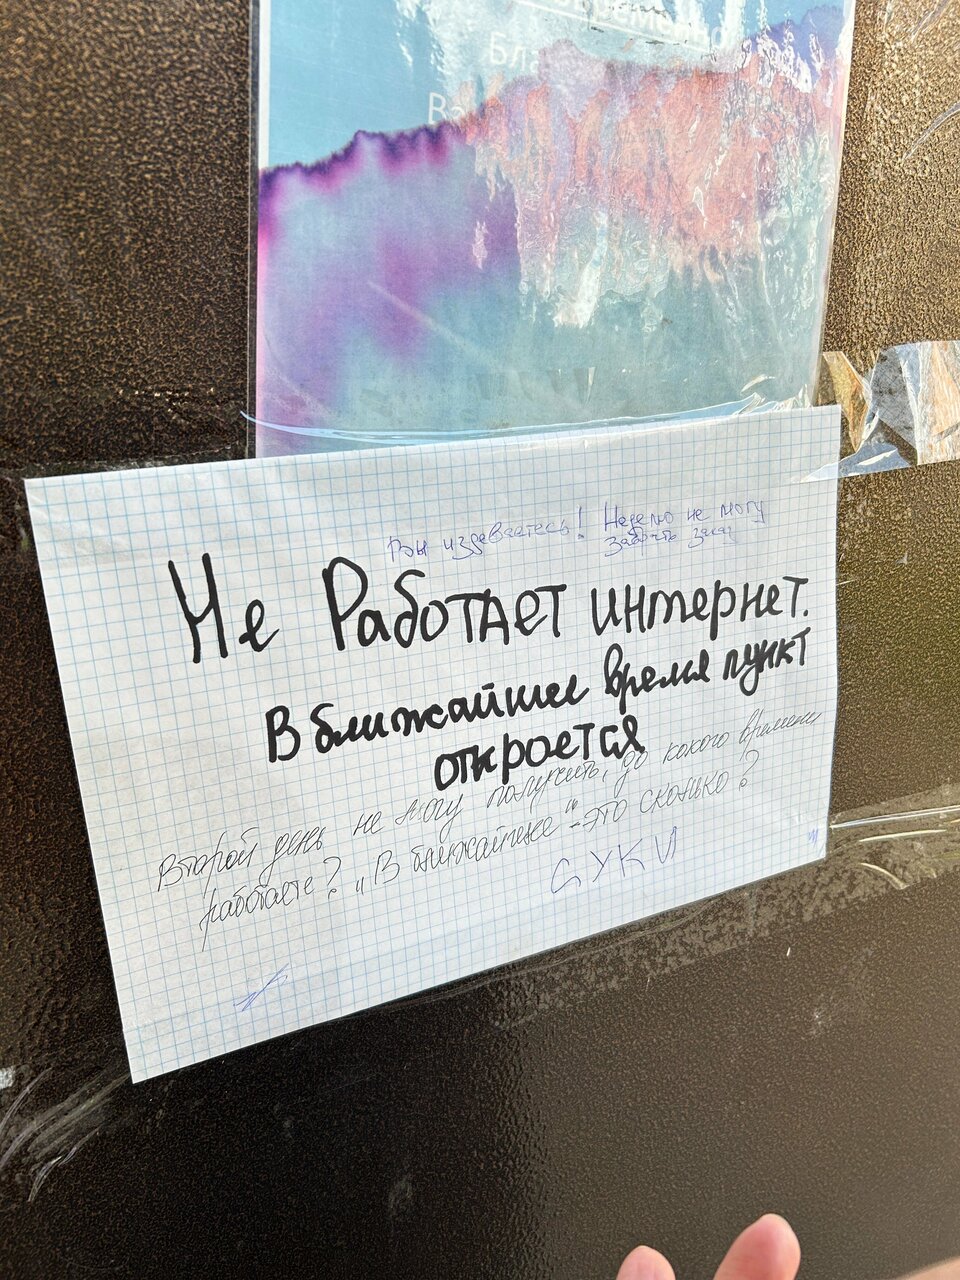 Вы издеваетесь! Неделю не могу
забрать заказ
Не Работает интернет.
В ближайшее время пункт
откроется
Второй день не могу получить, до какого времени
работаете? „В ближайшее“ - это сколько?
СУКИ